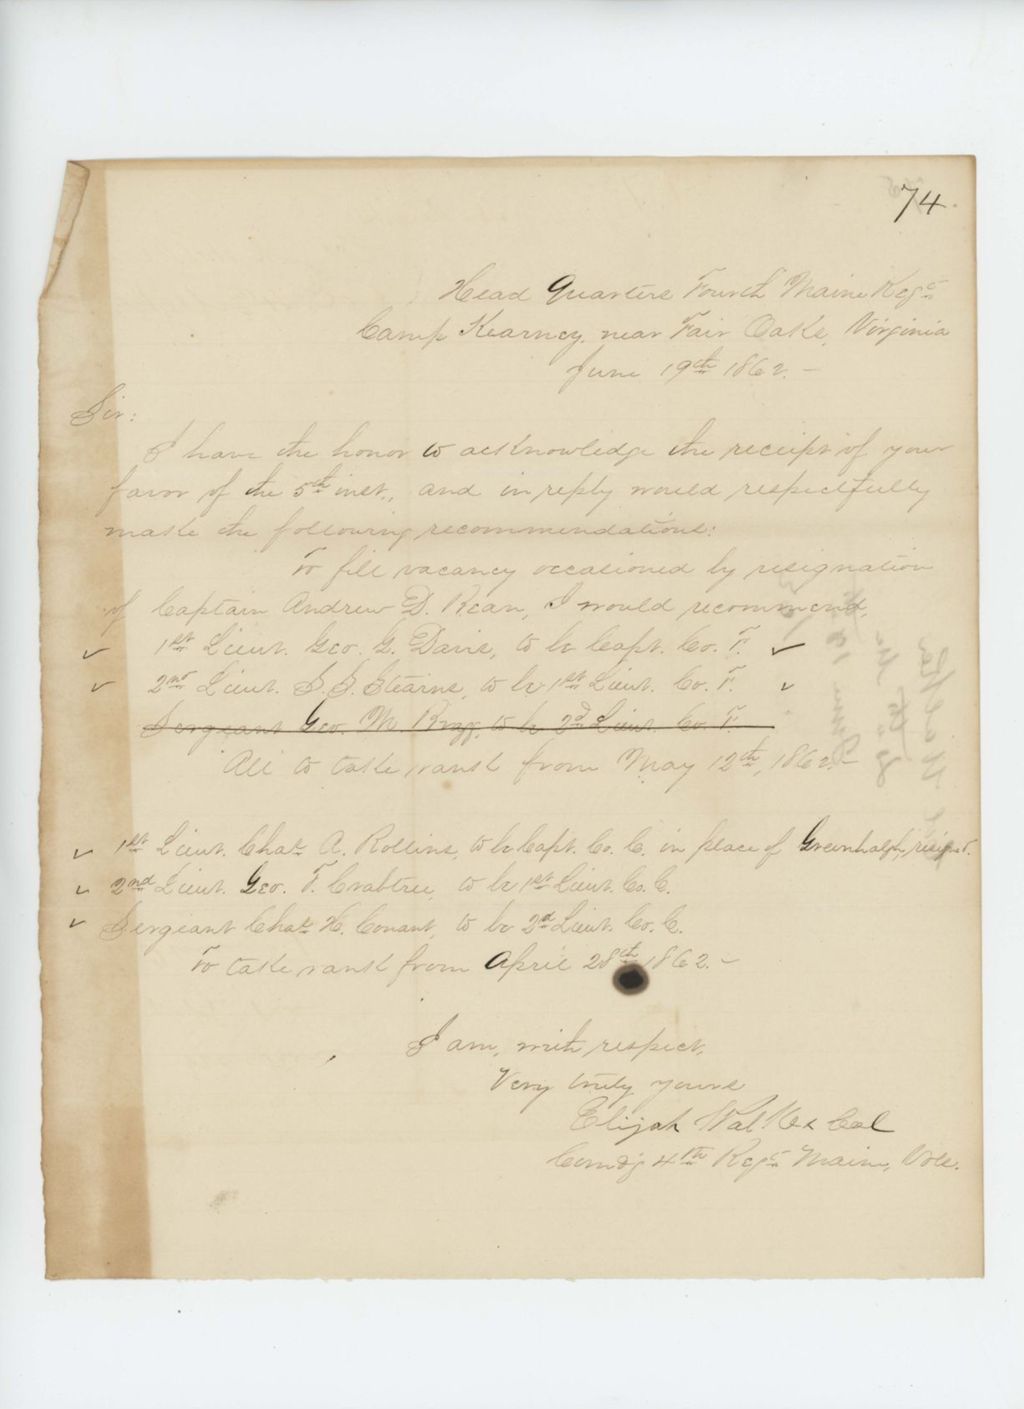 74.
Head Quarters Fourth Maine Regt
Camp Kearney, near Fair Oaks, Virginia
June 19th 1862. –
Sir:
I have the honor to acknowledge the receipt of your
favor of the 5th inst., and in reply would respectfully
make the following recommendations:
To fill vacancy occasioned by resignation
of Captain Andrew D. Bean, I would recommend,
✓ 1st Lieut. Geo. G. Davis, to be Capt. Co. F. ✓
✓ 2nd Lieut. S. S. Stearns, to be 1st Lieut. Co. F. ✓
Sergeant Geo. M. Bragg, to be 2d Lieut. Co. F.
All to take rank from May 12th, 1862. –
✓ 1st Lieut. Chas. A. Rollins, to be Capt. Co. C. in place of Greenhalgh, resigned.
✓ 2nd Lieut. Geo. F. Crabtree, to be 1st Lieut. Co. C.
✓ Sergeant Chas. H. Conant, to be 2d Lieut. Co. C.
To take rank from April 28th 1862. –
I am, with respect,
Very truly yours
Elijah Walker Col
Comd'g 4th Regt Maine Vols.